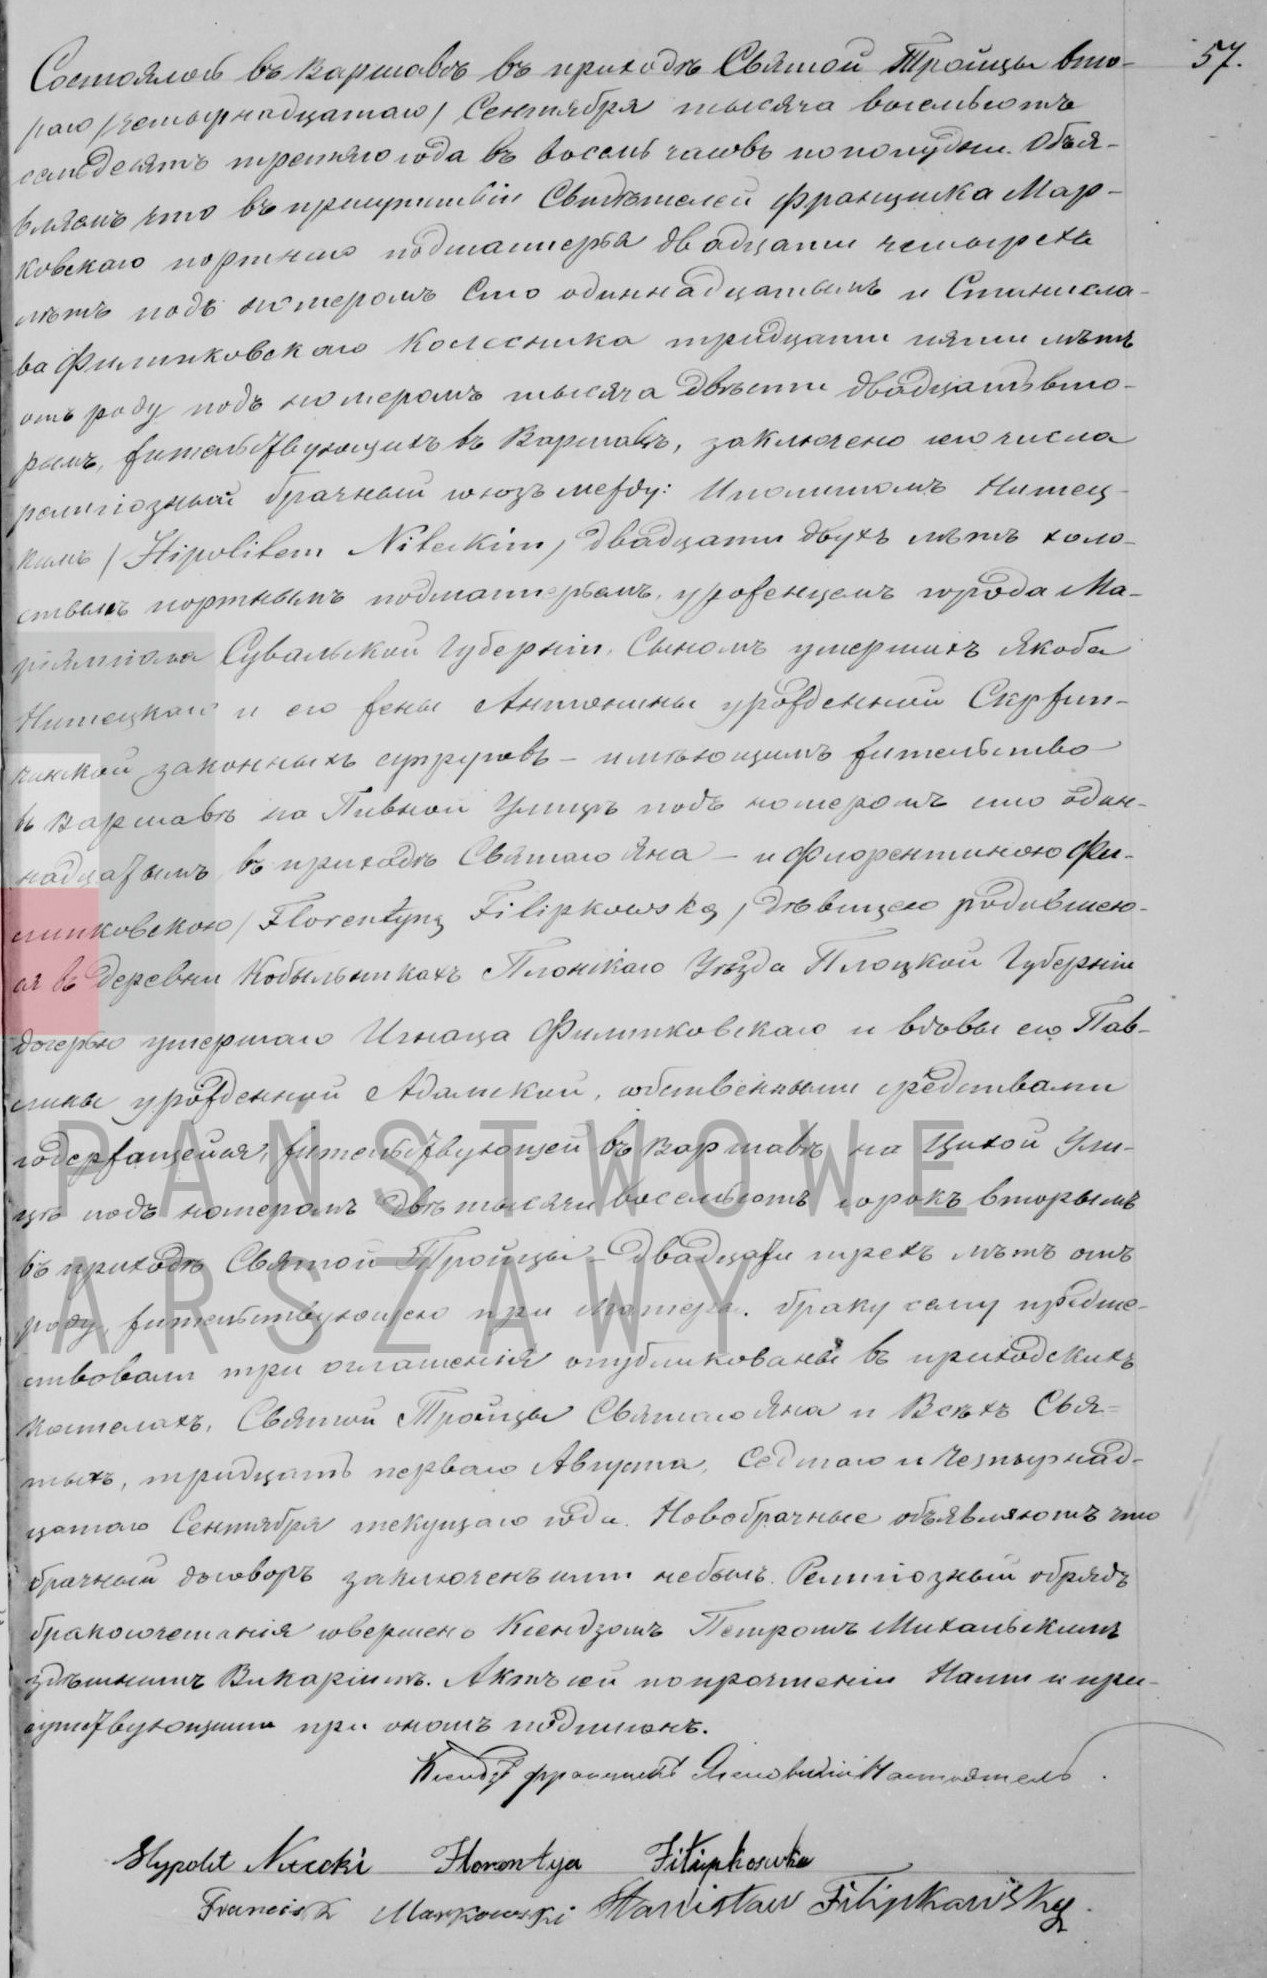 57.
Состоялось въ Варшавѣ въ приходѣ Святой Тройцы вто-
раго /четырнадцатаго/ Сентября тысяча восемьсотъ
семдесятъ третяго года въ восемь часовъ пополудни. Объя-
вляемъ что въ присутствіи Свидѣтелей Францишка Мар-
ковскаго портнаго подмастерья двадцати четырехъ
лѣтъ подъ номеромъ сто одиннадцатымъ и Станисла-
ва Филипковскаго Колесника тридцати пяти лѣтъ
отъ роду подъ номеромъ тысяча двѣсти двадцать вто-
рымъ, жительствующихъ въ Варшавѣ, заключено сего числа
религіозный брачный союзъ между: Иполитомъ Нитец-
кимъ /Hipolitem Niteckim/ двадцати двухъ лѣтъ холо-
стымъ портнымъ подмастерьемъ, уроженцемъ города Ма-
ріямполя Сувальской Губерніи, Сыномъ умершихъ Якоба
Нитецкаго и его жены Антонины урожденной
законныхъ супруговъ – имѣющимъ жительство
въ Варшавѣ на Пивной Улицѣ подъ номеромъ сто один-
надцатымъ въ приходѣ Святаго Яна – и Флорентиною Фи-
липковскою /Florentyną Filipkowską/ дѣвицею родившею-
ся въ деревни Кобыльникахъ Плонскаго Уѣзда Плоцкой Губерніи
дочерью умершаго Игнаца Филипковскаго и вдовы его Пав-
лины урожденной Адамской, собственными средствами
содержащейся, жительствующей въ Варшавѣ на Цихой Ули-
цѣ подъ номеромъ двѣ тысячи восемьсотъ сорокъ вторымъ
въ приходѣ Святой Тройцы – двадцати трехъ лѣтъ отъ
роду, жительствующею при матери. Браку сему предше-
ствовали три оглашенія опубликованы въ приходскихъ
костелахъ, Святой Тройцы Святаго Яна и Всѣхъ Свя-
тыхъ, тридцать перваго Августа, Седмаго и Четырнад-
цатаго Сентября текущаго года. Новобрачные объявляютъ что
брачный договоръ заключенъ ими небылъ. Религіозный обрядъ
бракосочетанія совершенъ Ксендзомъ Петромъ Михальскимъ
здѣшнимъ Викаріемъ. Актъ сей по прочтеніи Нами и при-
сутствующими при ономъ подписанъ.
Ксендзъ Францишекъ Настоятель
Hypolit Nitecki Florentya Filipkoska
Francisz Markowski Stanisław Filipkawsky
PAŃSTWOWE
ARSZAWY